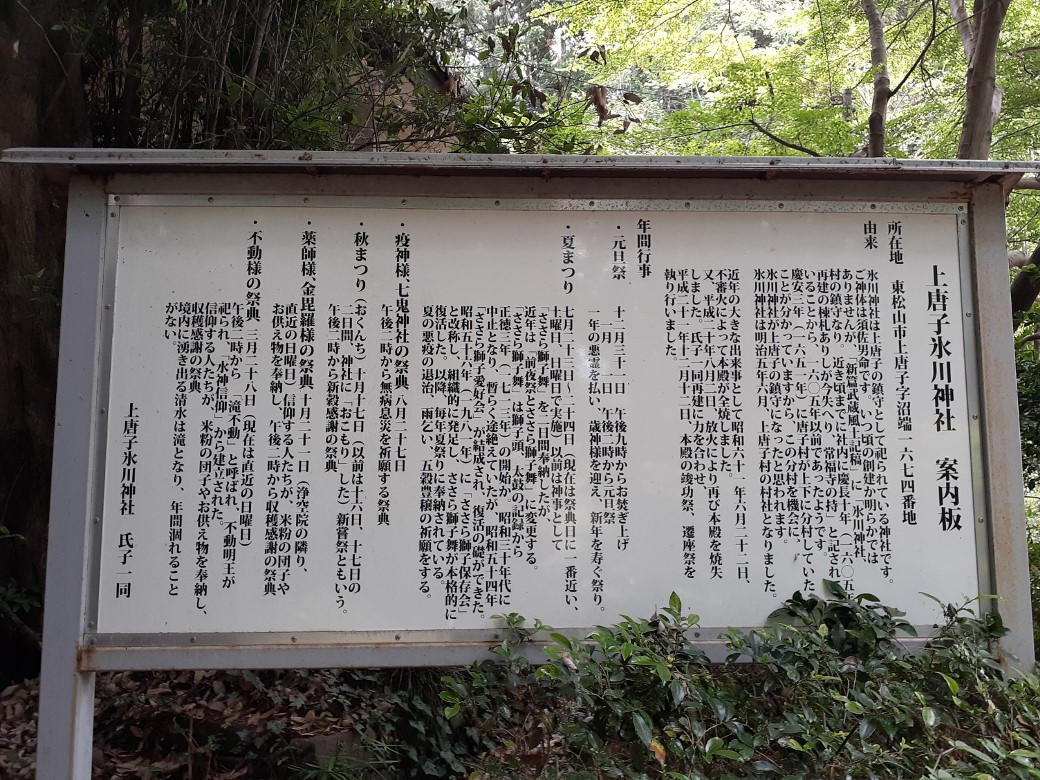 上唐子氷川神社　案内板
所在地　東松山市上唐子字沼端一六七四番地
由来
氷川神社は上唐子の鎮守として祀られている神社です。
ご神体は須佐男命です。いつ頃の創建か明らかでは
ありませんが、「新篇武蔵風土記稿」に「氷川神社、
村の鎮守なり、近き頃までに社内に慶長十年（一六〇五年）
再建の棟札ありしが今みえへり、常福寺の持」と記されて
いることから、一六〇五年以前であったようです。
慶安二年（一六五一年）に唐子村が上下に分村していた
ことが分かっていますから、この分村を機会に、
氷川神社が上唐子の鎮守になったと思われます。
氷川神社は明治五年六月、上唐子村の村社となりました。
近年の大きな出来事として昭和六十一年六月二十二日、
不審火によって本殿が全焼しました。
又、平成二十年八月二日、放火により再び本殿を焼失
しました。氏子一同再建に力を合わせ、
平成二十一年十二月十二日、本殿の竣功祭、遷座祭を
執り行いました。
年間行事
・元旦祭　十二月三十一日　午後九時からお焚き上げ
一月一日　午後二時から元旦祭
一年の悪霊を払い、歳神様を迎え、新年を寿ぐ祭り。
・夏まつり　七月二十三日～二十四日（現在は祭典日に一番近い、
土曜日、日曜日で実施）以前は神事として
「ささら獅子舞」を二日間奉納したが、
近年は「前夜祭とささら獅子舞」に変更する。
「ささら獅子舞」は獅子頭、太鼓の記録から
正徳三年（一七一三年）の開始か、昭和三十年代に
中止となり、暫らく途絶えていたが、昭和五十四年
「ささら獅子愛好会」が結成され、復活の礎ができた。
昭和五十六年（一九八一年）に「ささら獅子保存会」
と改称し、組織的に発足し、ささら獅子舞が本格的に
復活した。以降、毎年夏祭りに奉納されている。
夏の悪疫の退治、雨乞い、五穀豊穣の祈願をする。
・疫神様、七鬼神社の祭典、八月二十七日
午後二時から無病息災を祈願する祭典
・秋まつり（おくんち）十月十七日（以前は十六日、十七日の
二日間、神社に「おこもり」した）新嘗祭ともいう。
午後二時から新穀感謝の祭典
・薬師様、金毘羅様の祭典、十月二十一日（浄空院の隣り、
直近の日曜日）信仰する人たちが、米粉の団子や
お供え物を奉納し、午後二時から収穫感謝の祭典
・不動様の祭典、三月二十八日（現在は直近の日曜日）
午後二時から「滝不動」と呼ばれ、不動明王が
祀られ、「水神信仰」から建立された。
信仰する人たちが、米粉の団子やお供え物を奉納し、
収穫感謝の祭典。
境内に湧き出る清水は滝となり、年間涸れること
がない。
上唐子氷川神社　氏子一同